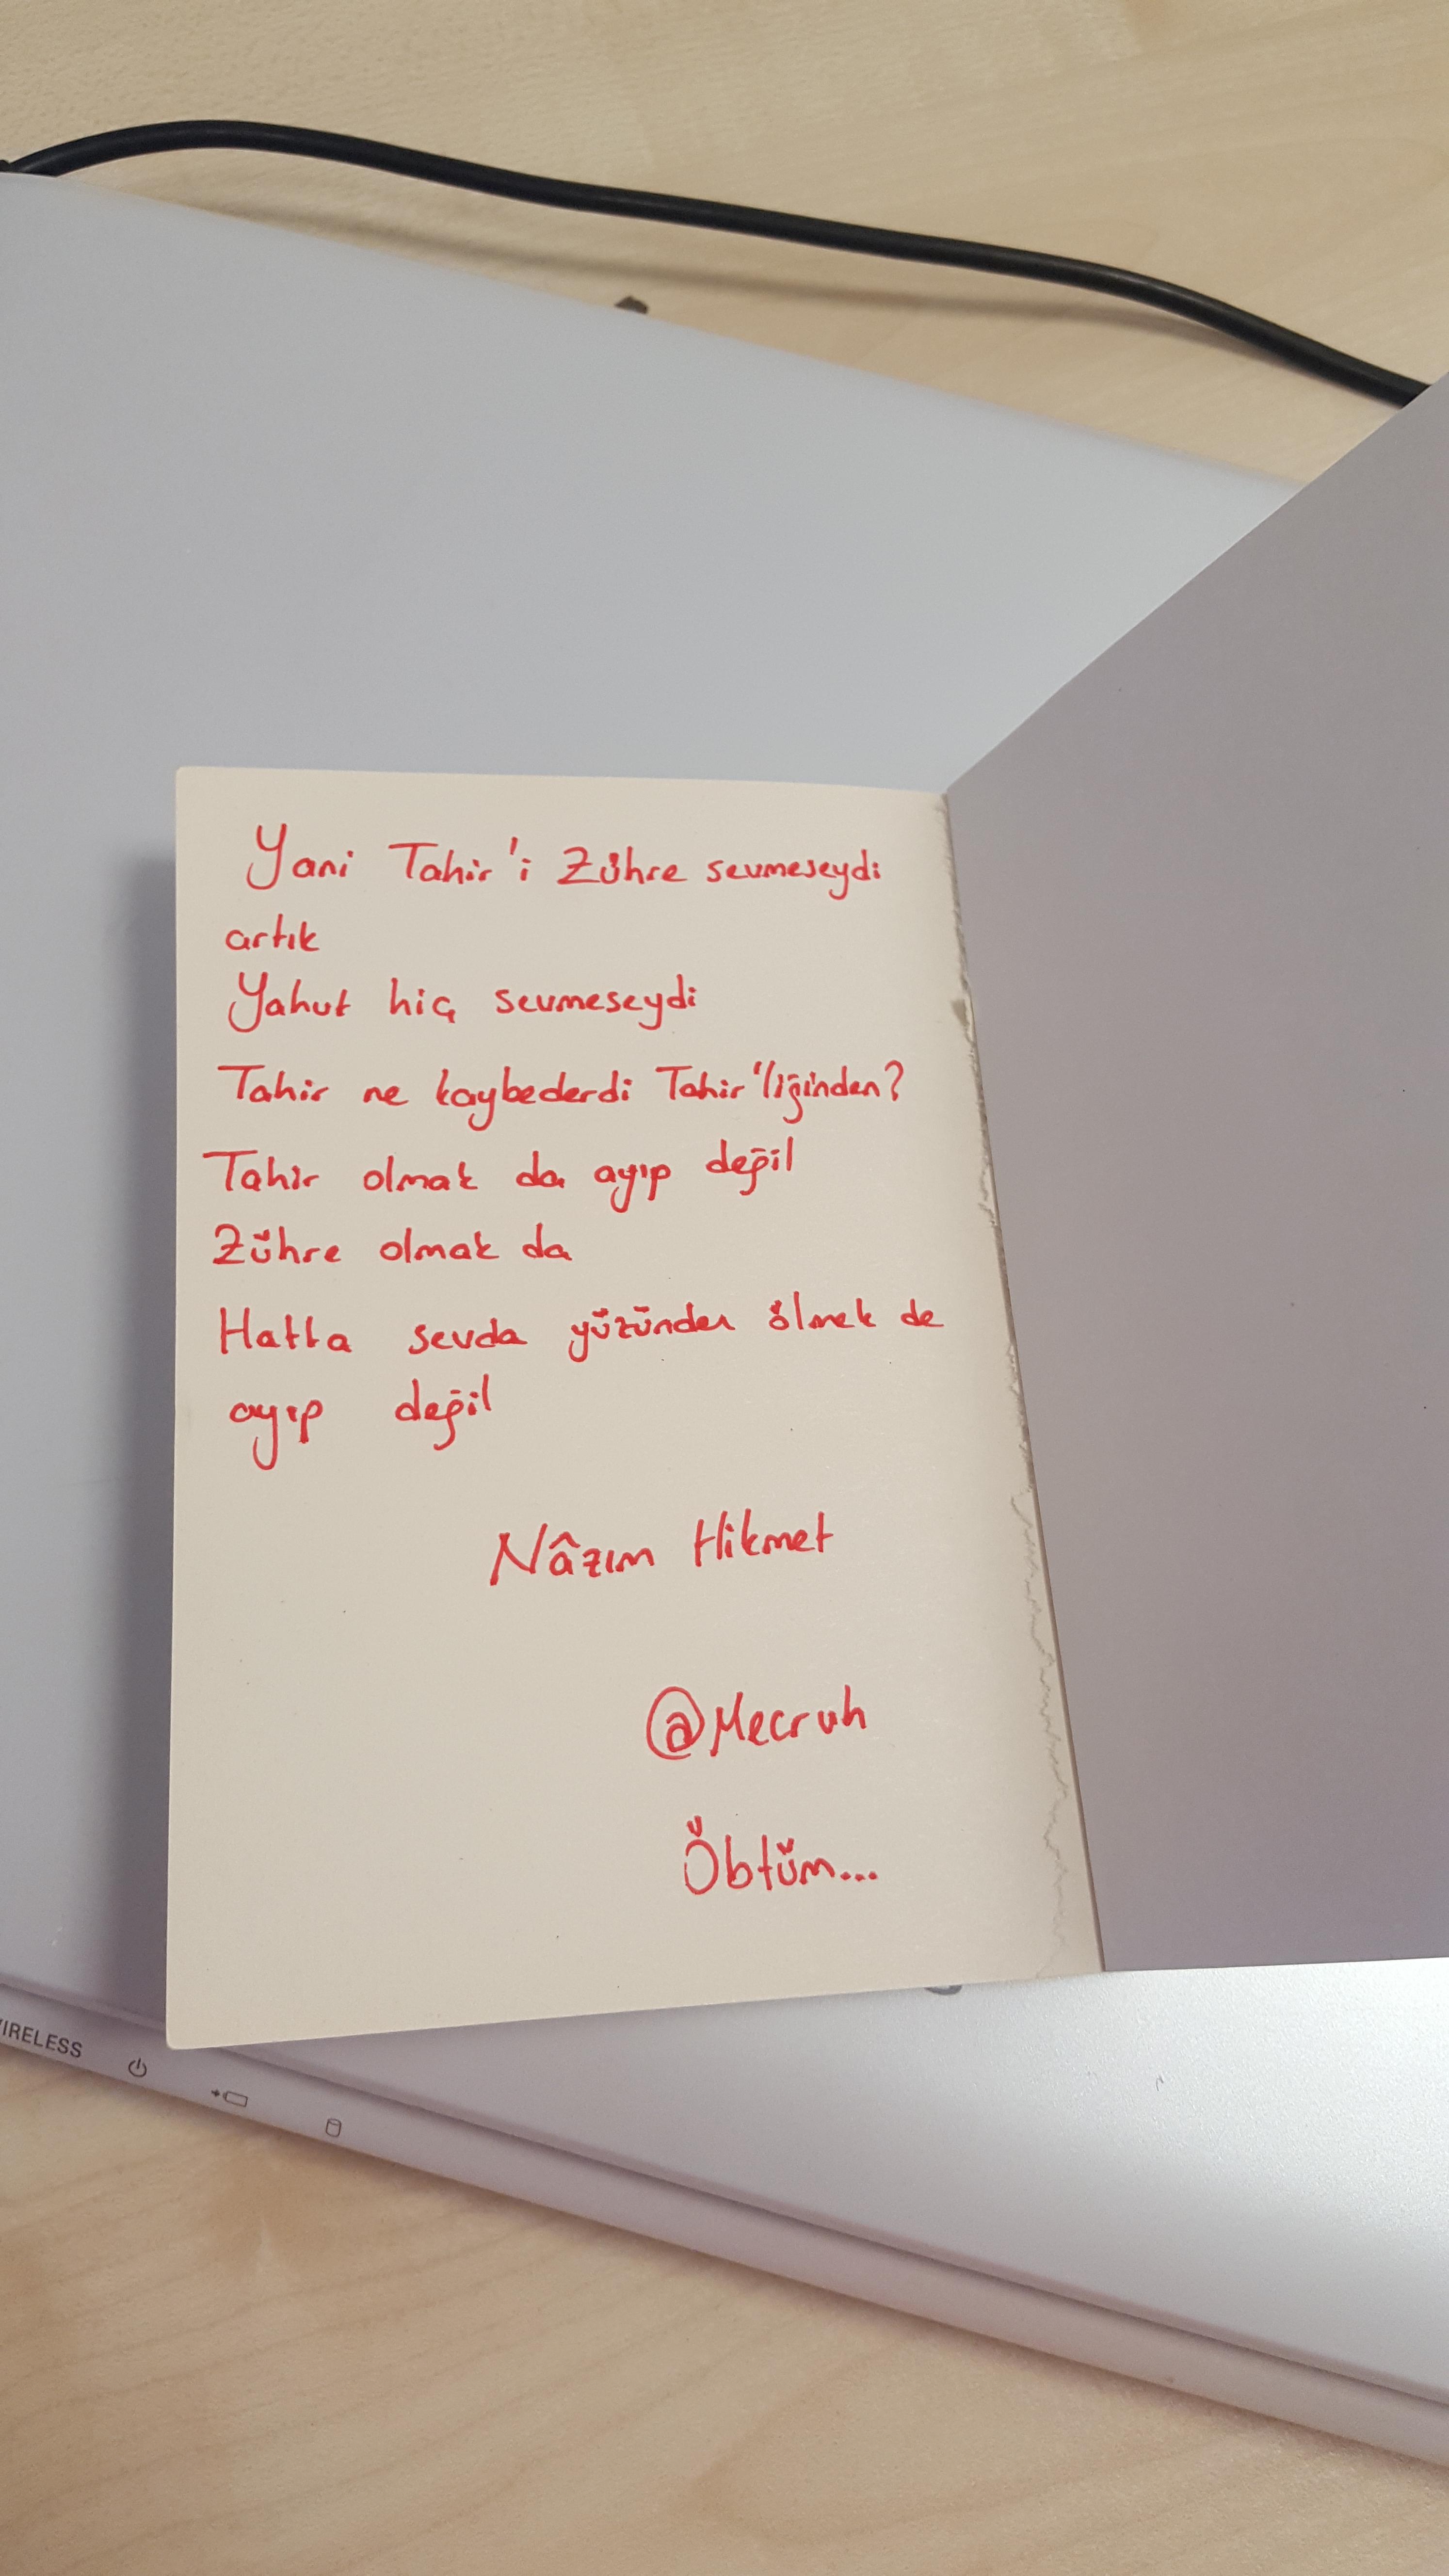 Yani Tahir'i Zühre sevmeseydi
artık
Yahut hiç sevmeseydi
Tahir ne kaybederdi Tahir'liğinden?
Tahir olmak da ayıp değil
Zühre olmak da
Hatta sevda yüzünden ölmek de
ayıp değil
Nâzım Hikmet
@Mecruh
Öbtüm...
WIRELESS